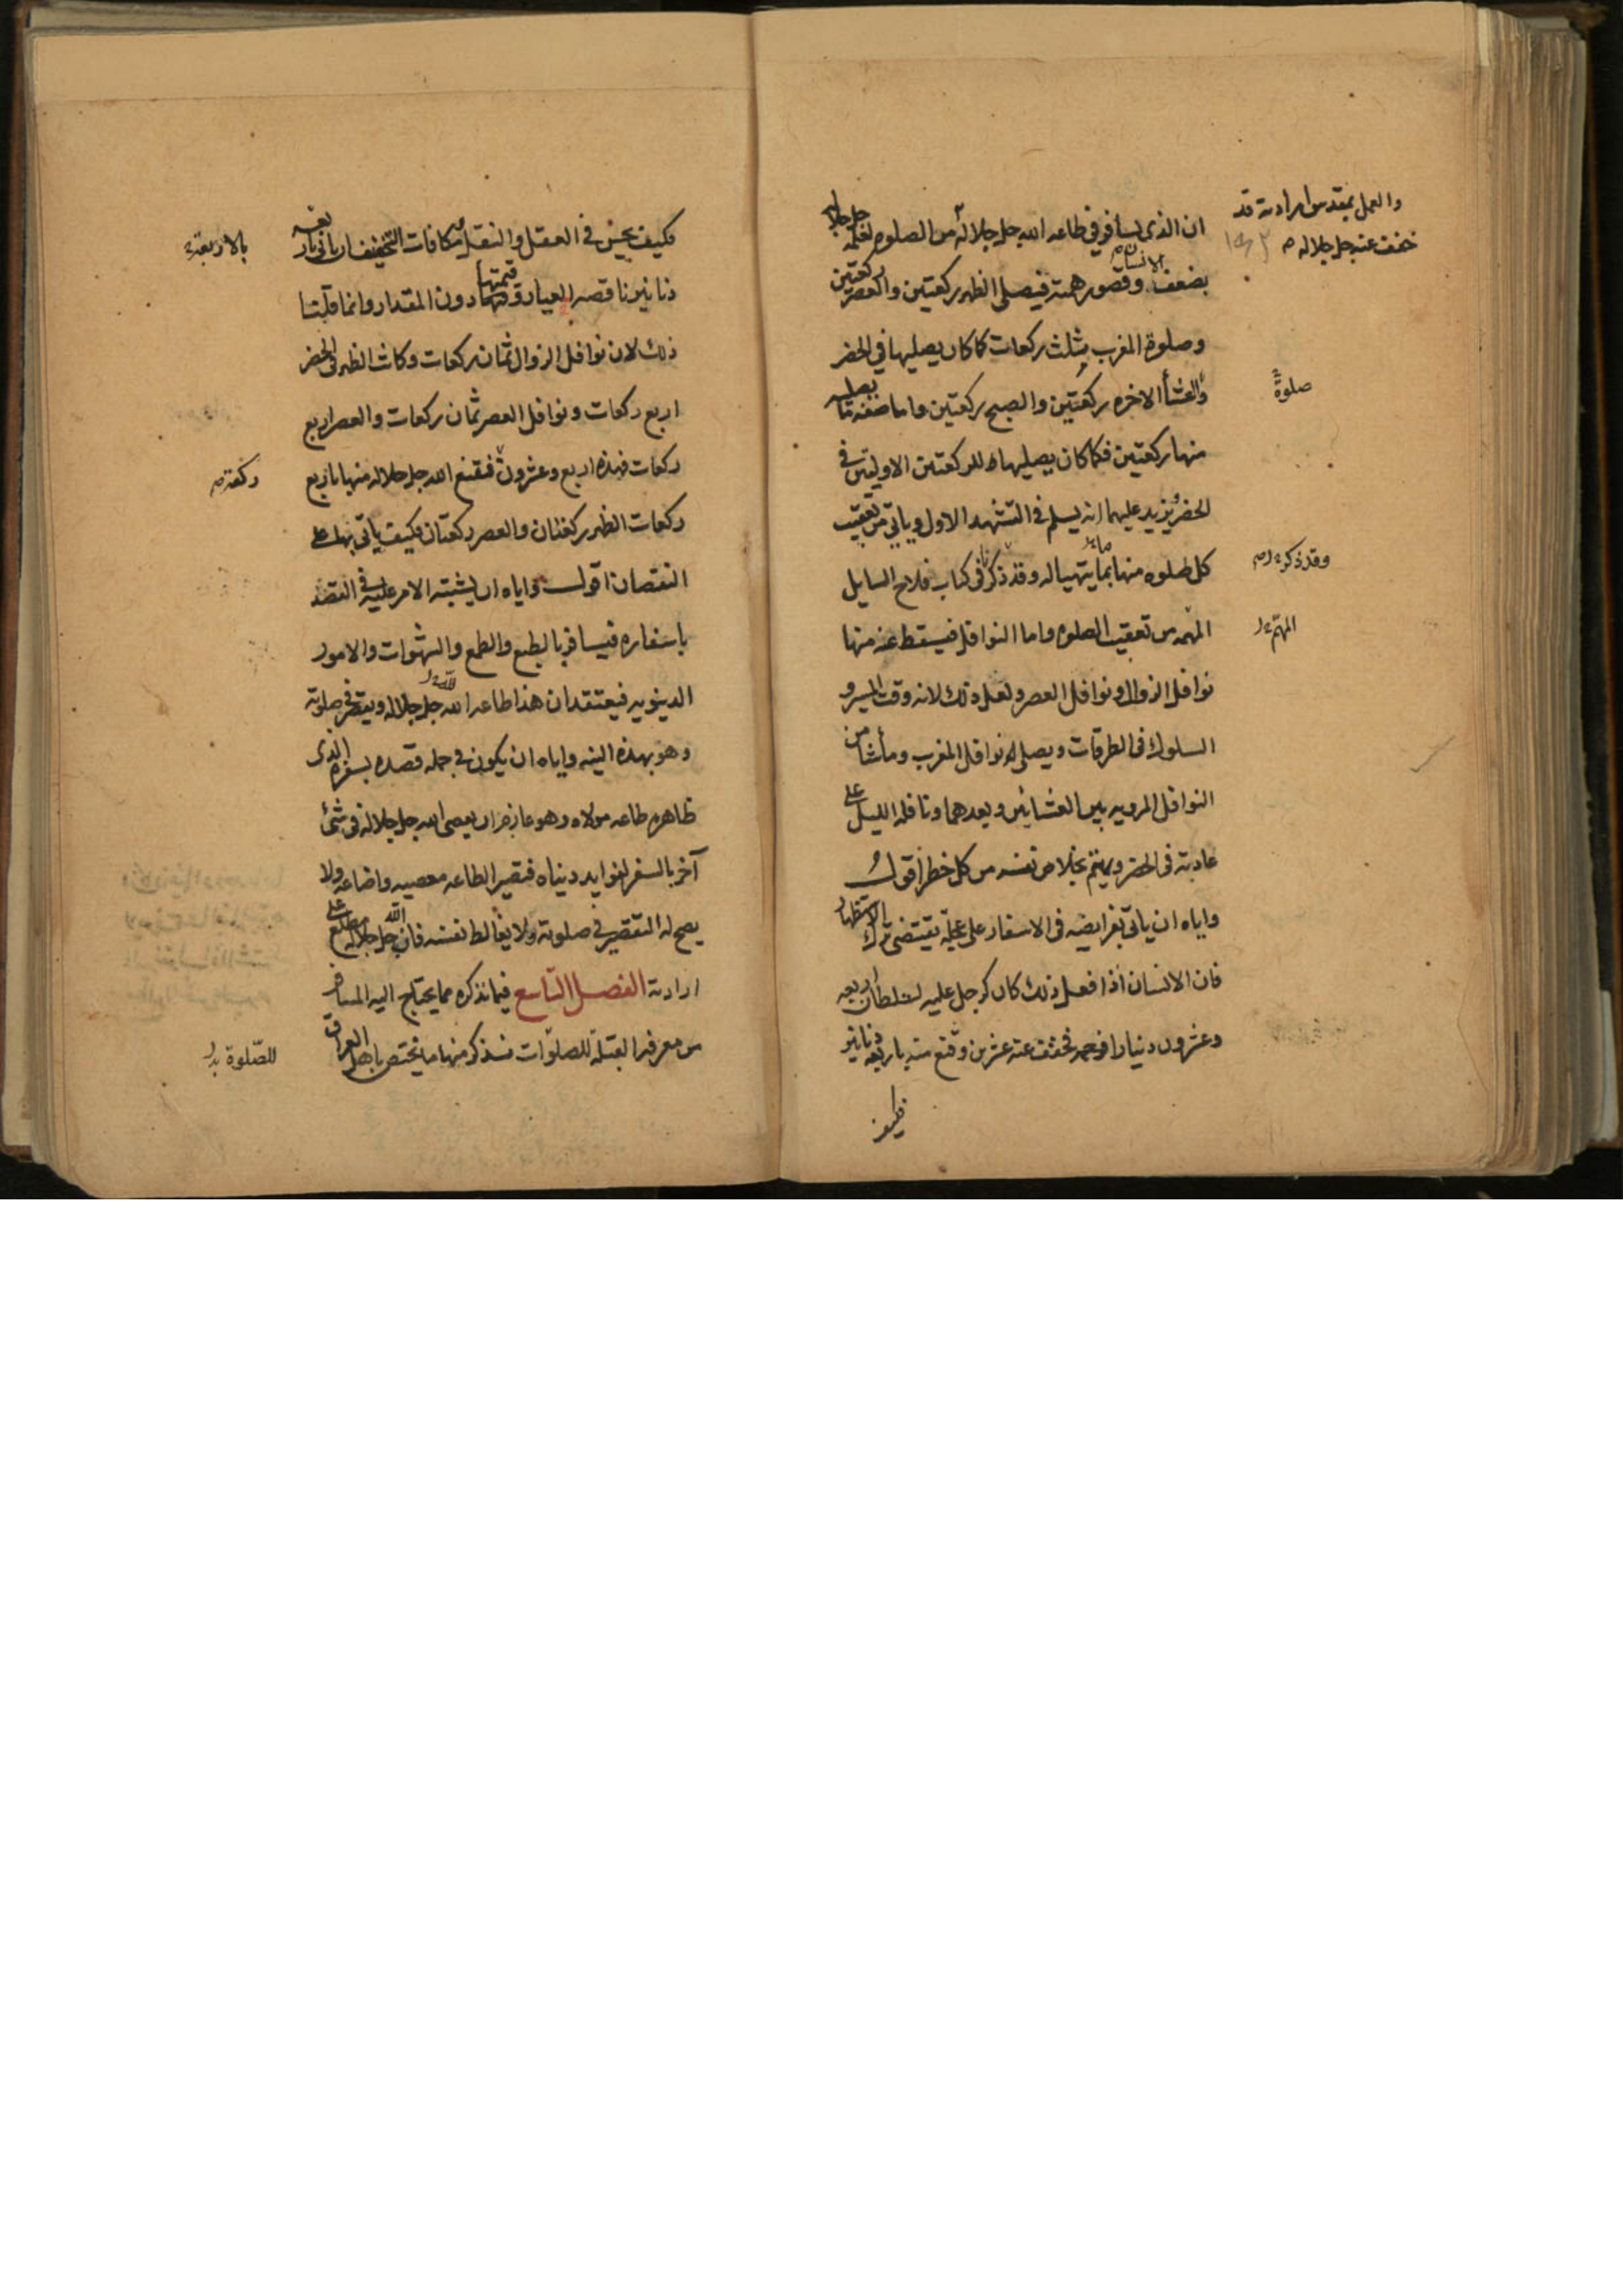 والعمل بمقدس مراداته قد
خفف عنه جل جلاله
ان الذى يسافر فى طاعه الله جل جلاله من الصلوه لعلمه جل جلاله
بضعف الانسان وقصور همته فيصلى الظهر ركعتين والعصر ركعتين
وصلوة المغرب بثلث ركعات كما كان يصليها فى الحضر
والعشأ الاخره ركعتين والصبح ركعتين واما صفة ما يصليه
صلوة
منها ركعتين فكما كان يصليها للركعتين الاوليتين فى
الحضر ويزيد عليهما انه يسلم فى التشهد الاول وياتى من تعقيب
كل صلوه منها بما يتهيا له وقد ذكرنا فى كتاب فلاح السايل
وقد ذكر
المهمه من تعقيب الصلوه واما النوافل فيسقط عنه منها
المهم
نوافل الزوال ونوافل العصر ولعل ذلك لانه وقت المسير و
السلوك فى الطرقات ويصلى له نوافل المغرب ومأشا من
النوافل المرويه بين العشائين وبعدهما ونافله الليل على
عادته فى الحضر ويهتم بخلاص نفسه من كل خطر اقول
واياه ان ياتى بفرايضه فى الاسفار على عجلة تقتضى ترك الاستظهار
فان الانسان اذا فعل ذلك كان كرجل عليه لسلطان اربعه
وعشرون دينارا فوجه فخفف عنه عشرين وقنع منه باربعه دنانير
فكيف
فكيف يحسن فى العقل والنقل مكافات التخفيف ان ياتى باربعه
بالاربعة
دنانير ناقصه العيار وقيمتها دون المقدار وانما قلنا
ذلك لان نوافل الزوال ثمان ركعات وكانت الظهر فى الحضر
اربع ركعات ونوافل العصر ثمان ركعات والعصر اربع
ركعات فهذه اربع وعشرون فقنع الله جل جلاله منها باربع
ركعة
ركعات الظهر ركعتان والعصر ركعتان فكيف ياتى بها على
النقصان اقول واياه ان يشتبه الامر عليه فى القصد
باسفاره فيسافر بالطبع والطمع والشهوات والامور
الدينويه فيعتقد ان هذا طاعه لله جل جلاله ويقصر فى صلوته
وهو بهذه النيه واياه ان يكون فى جمله قصده بسفره الذى
ظاهره طاعه مولاه وهو عازم ان يعصى الله جل جلاله فى شئ
آخر بالسفر لفوايد دنياه فتصير الطاعه معصيه واضاعه ولا
يصح له التقصير فى صلوته ولا يغالط نفسه فان الله جل جلاله مطلع على
ارادته الفصل التاسع فيما نذكره مما يحتاج اليه المسافر
من معرفة القبلة للصلوات فنذكر منها ما يختص باهل العراق
للصلوة